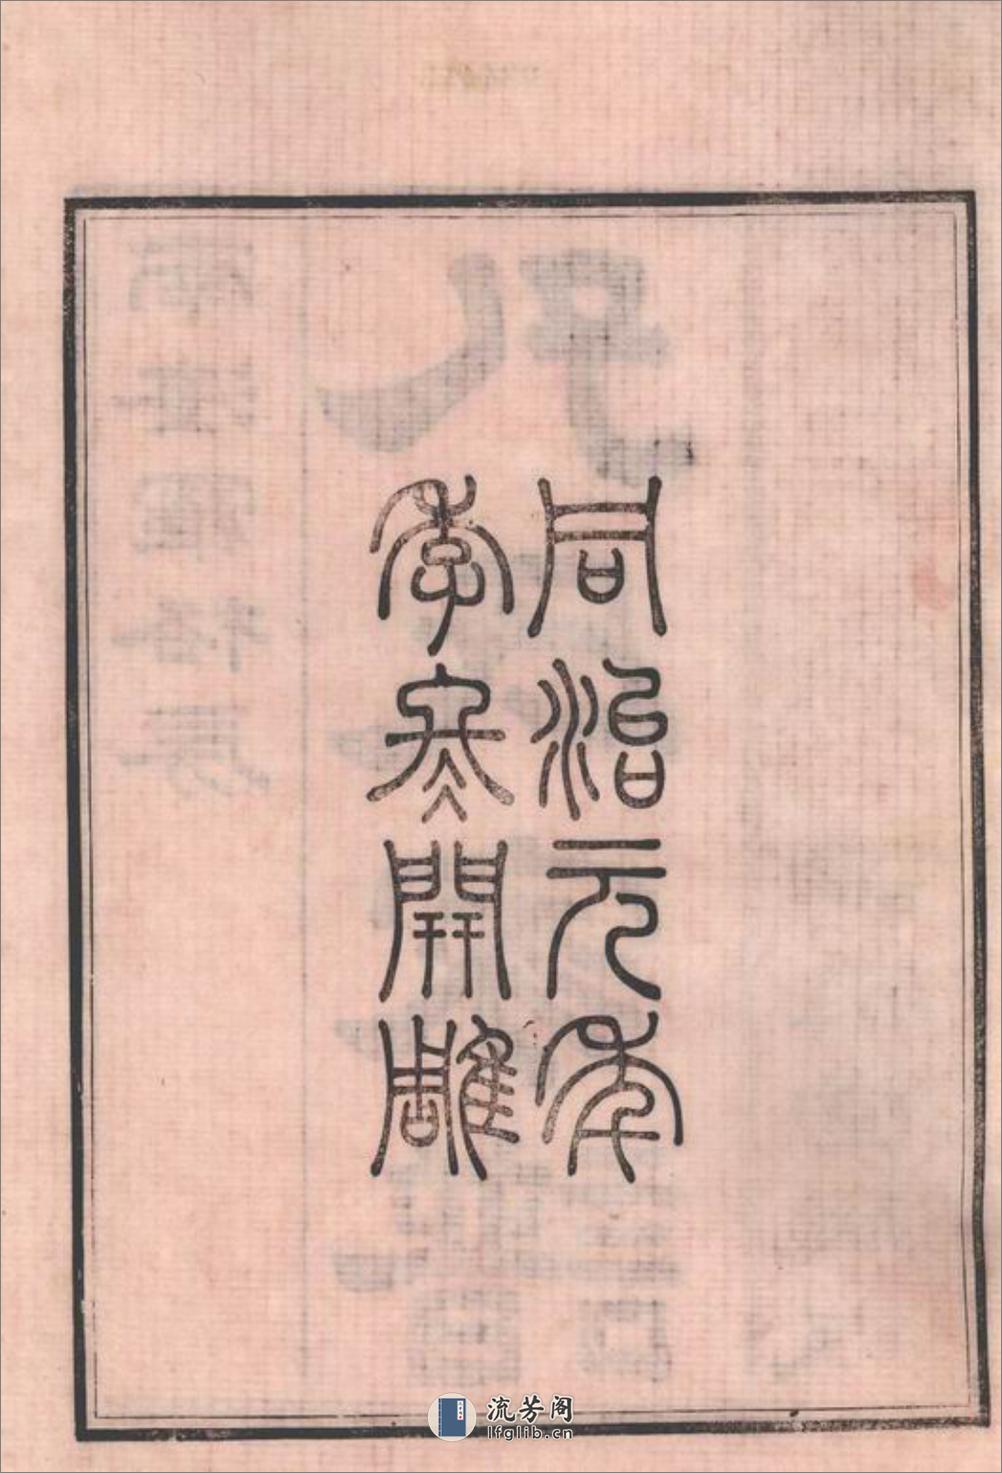 同治元年
季冬開雕
流芳阁
lfglib.cn